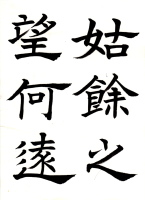 姑餘之
望何遠